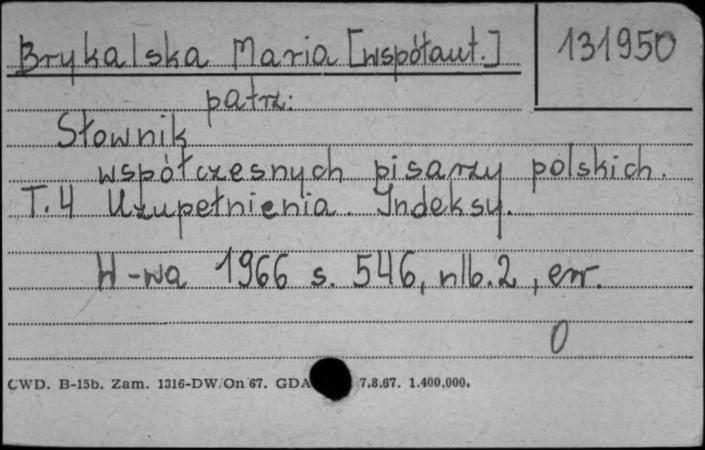 Brykalska Maria [współaut.]
131950
patrz:
Słownik
współczesnych pisarzy polskich.
T. 4 Uzupełnienia. Indeksy.
W-wa 1966 s. 546, nlb. 2, err.
0
CWD. B-15b. Zam. 1316-DW/On 67. GDA 7.8.67. 1.400,000.